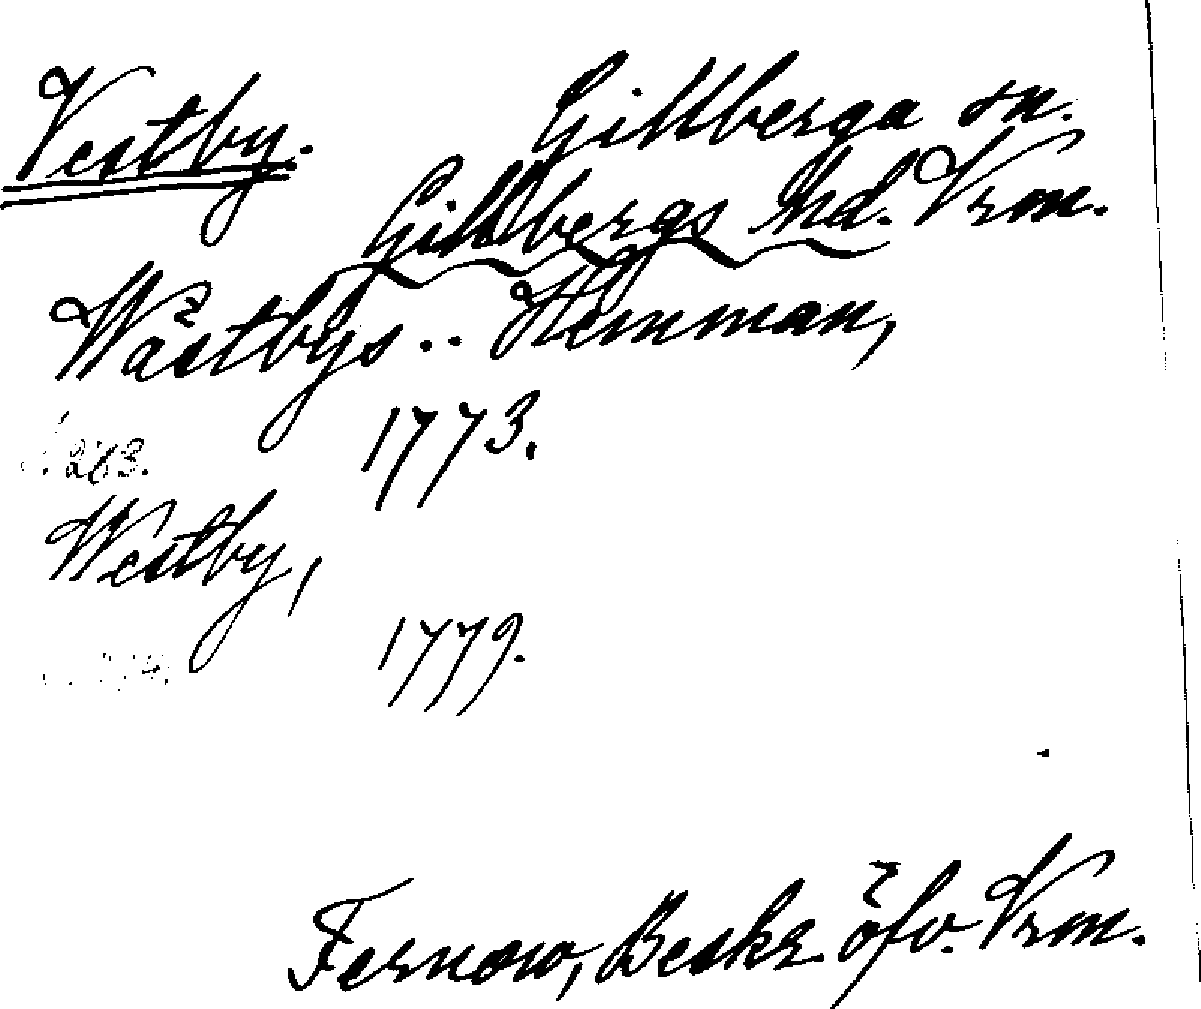 Vestby. Gillberga sn.
Gillbergs hd. Vrm.
Wästbys.. Hemman,
1773.
263.
Westby,
1779.
Fernow, Beskr. öfv. Vrm.